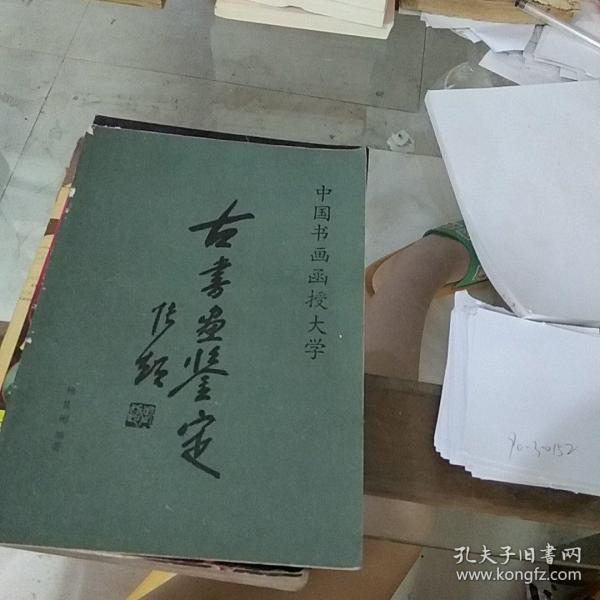 中国书画函授大学
古书画鉴定
张颔
编著
90-30152
孔夫子旧书网
www.kongfz.com